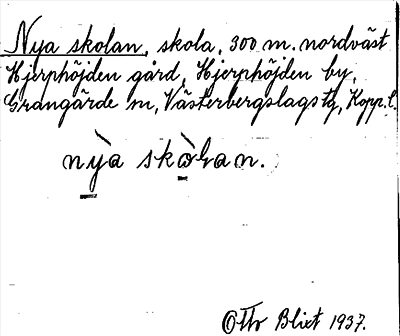 Nya skolan, skola, 300 m. nordväst
Hjerphöjden gård, Hjerphöjden by,
Grangärde sn, Västerbergslags tg, Kopp. l.
nỳa skòlan.
Otto Blixt 1937.